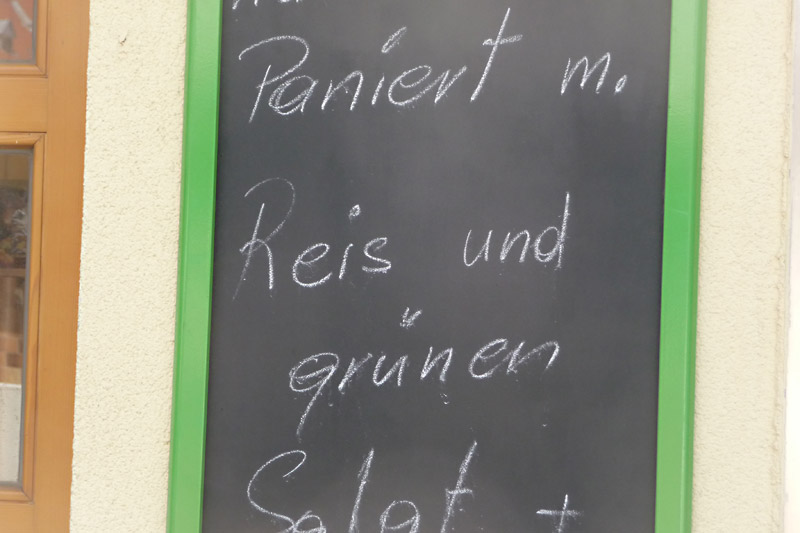 Paniert m.
Reis und
grünen
Salat +